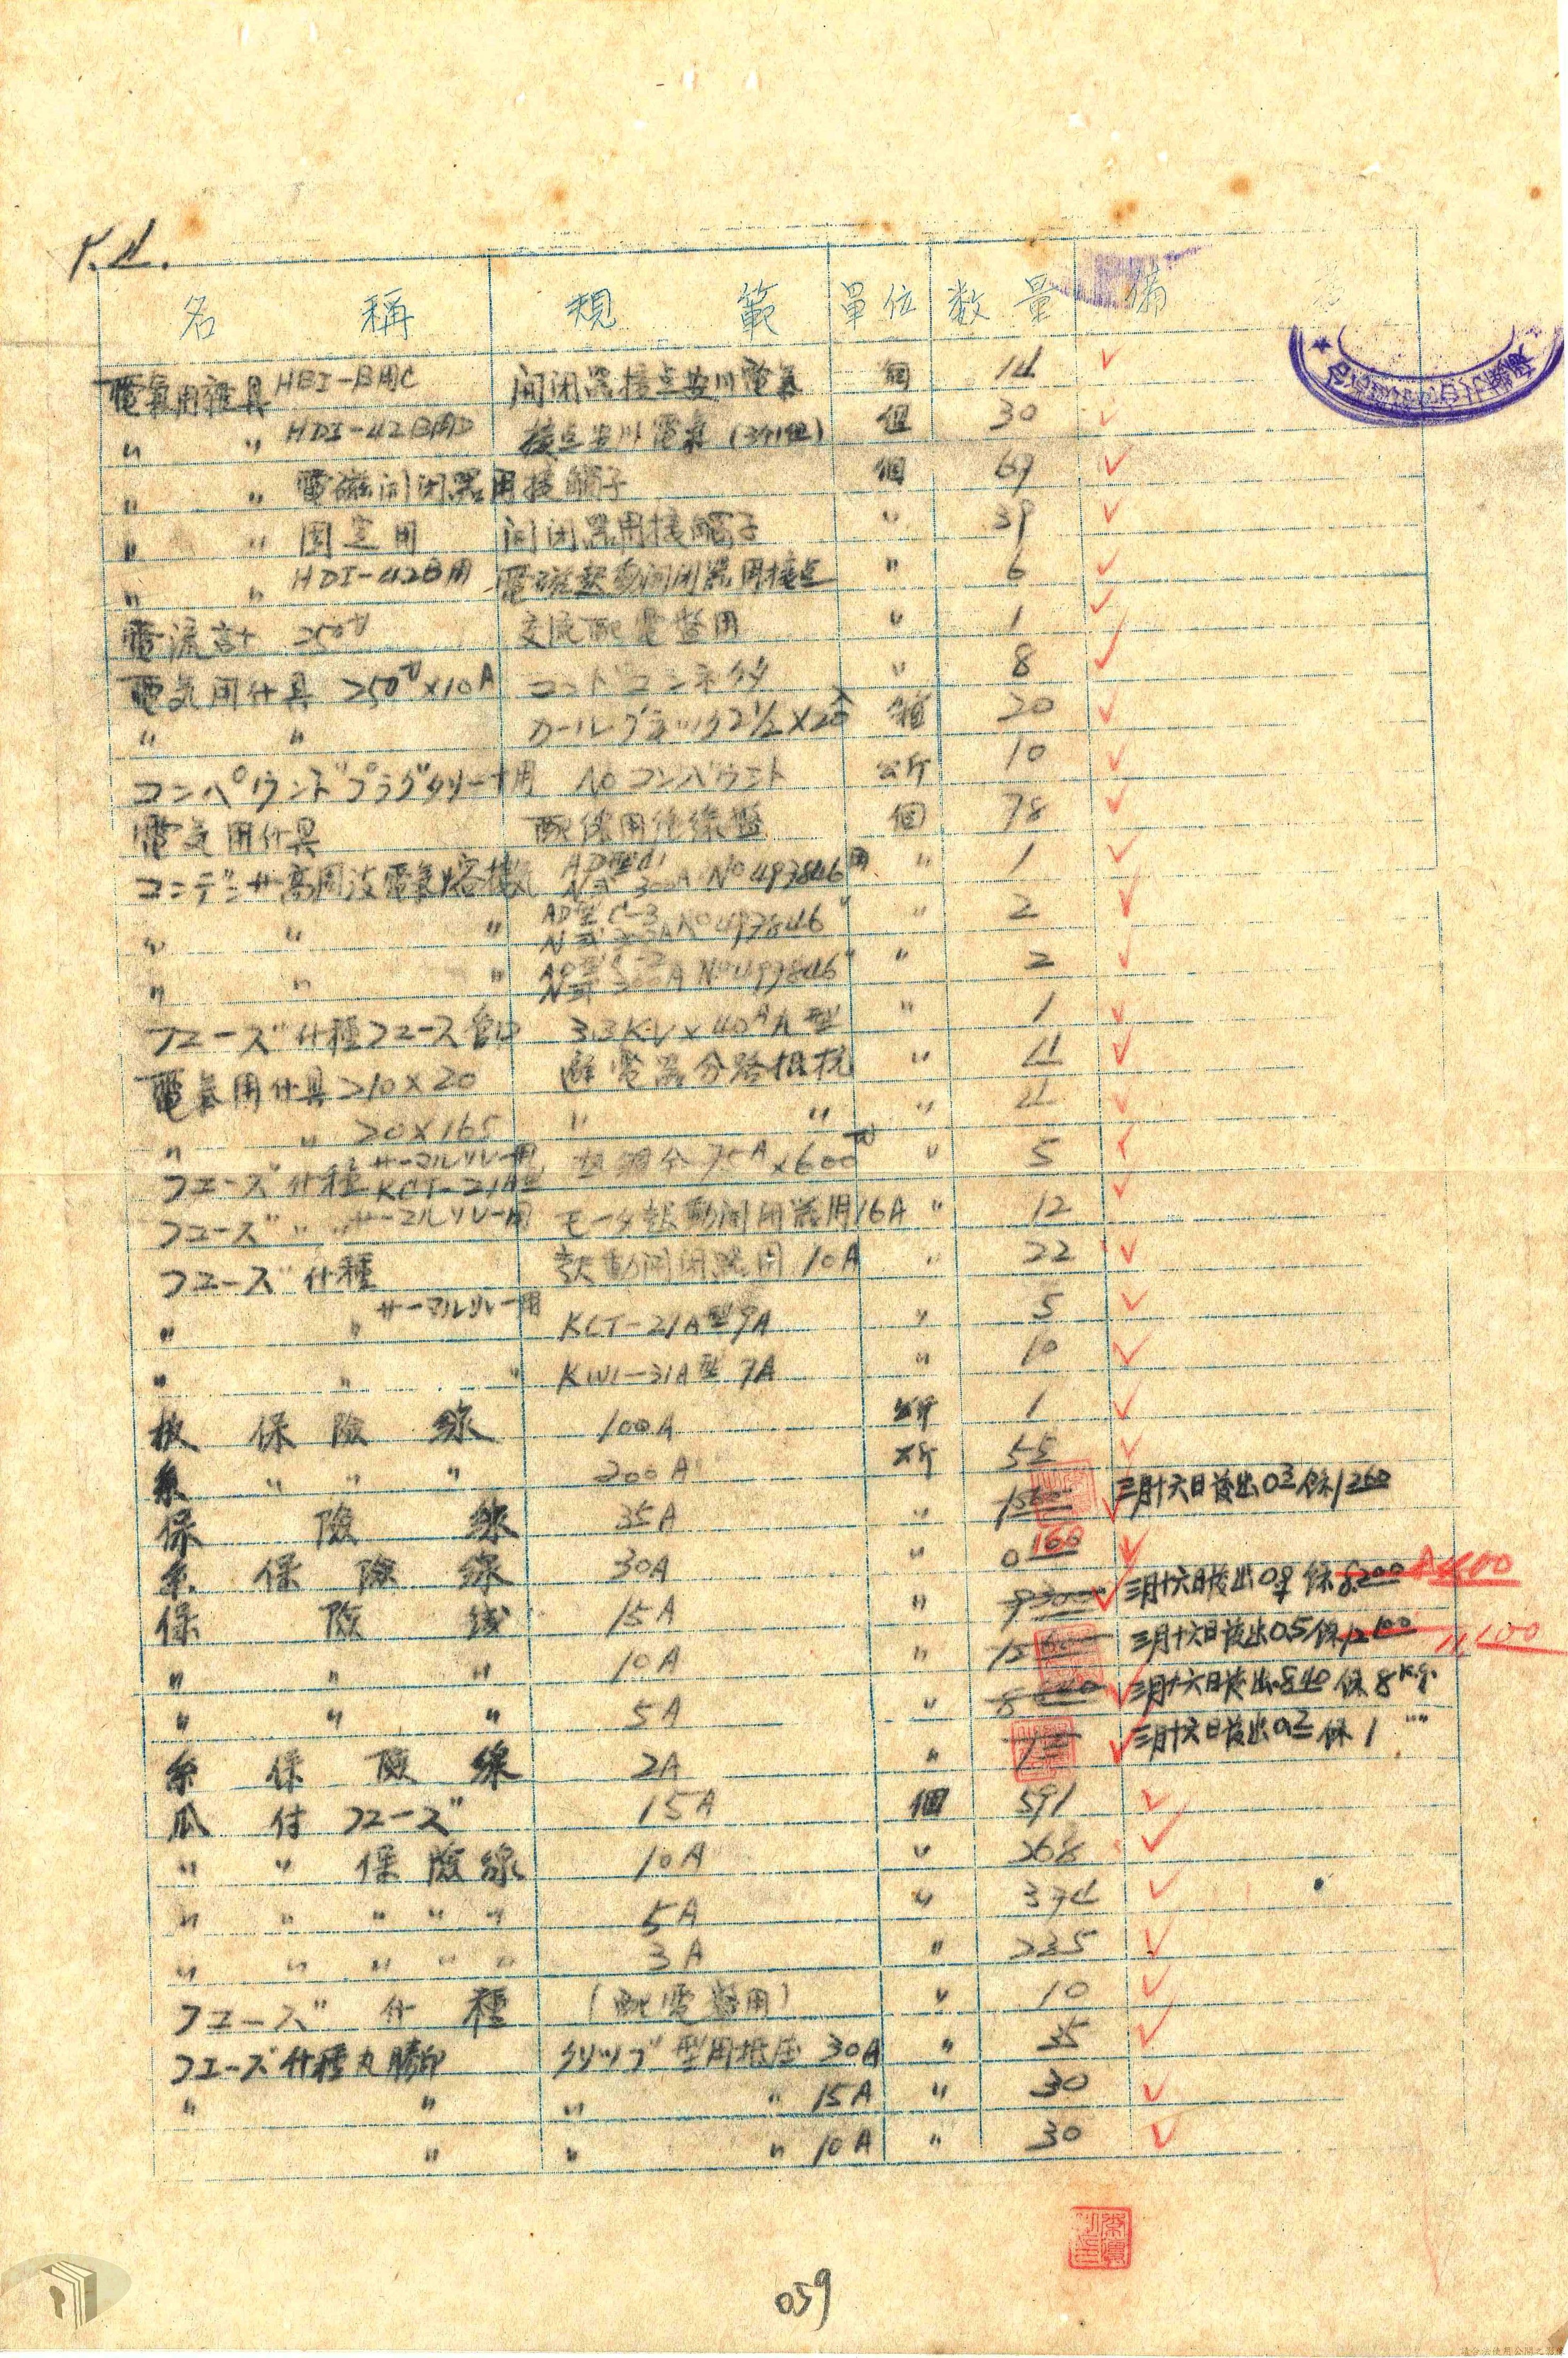 P.4.
名 稱 規 範 單位 数量 備
電氣用雜具 HBI-B用C 间闭器接点安川電氣 個 14
〃 〃 HDI-42B用D 接点安川電氣 個 30
〃 〃 電磁间闭器用接觸子 個 69
〃 〃 固定用 间闭器用接觸子 〃 39
〃 〃 HDI-42B用 電磁起動间闭器用接点 〃 6
電流計 250 交流配電盤用 〃 1
電気用什具 250V×10A コンドコンネクタ 〃 8
〃 〃 カールプラッグ 2½×20 箱 20
コンパウンドプラグクリート用 NOコンパウント 公斤 10
電気用什具 個 78
コンデンサ高周波電氣熔接 AD型 N式 300A No 493846用 〃 1
〃 〃 〃 AD型C-3 N式 No 493846〃 〃 2
〃 〃 〃 N式 300A No 493846〃 〃 2
フエーズ什種フエース 3.3KV×40A A型 〃 1
電氣用什具 210×20 避電器分路抵抗 〃 4
〃 〃 20×165 〃 〃 〃 4
フエーズ什種 サーマルリレー用 KCT-21A型 75A×600V 〃 5
フエーズ 〃 〃 サーマルリレー用 モータ起動间闭器用16A 〃 12
フエーズ什種 起動间闭器用 10A 〃 22
〃 〃 サーマルリレー用 KCT-21A型9A 〃 5
〃 〃 〃 KW1-31A型 7A 〃 10
板保險線 100A 公斤 1
糸 〃 〃 〃 200A 公斤 55
保險線 35A 〃 1560 三月十六日發出0.3 余1260
糸保險線 30A 〃 0160
保險线 15A 〃 9300 三月十六日發出0.9 余8.200 8400
〃 〃 〃 10A 〃 三月十六日發出0.5 余12100 11,100
〃 〃 〃 5A 〃 三月十六日發出.840 余8K.g.
糸保險線 2A 〃 三月十六日發出0.3 余1 〃〃
爪付フエーズ 15A 個 591
〃 〃 保險線 10A 〃 268
〃 〃 〃 〃 〃 5A 〃 374
〃 〃 〃 〃 〃 3A 〃 235
フエーズ什種 (配電盤用) 〃 10
フエーズ什種丸勝印 クリップ型用抵圧 30A 〃 35
〃 〃 〃 〃 15A 〃 30
〃 〃 〃 10A 〃 30
059